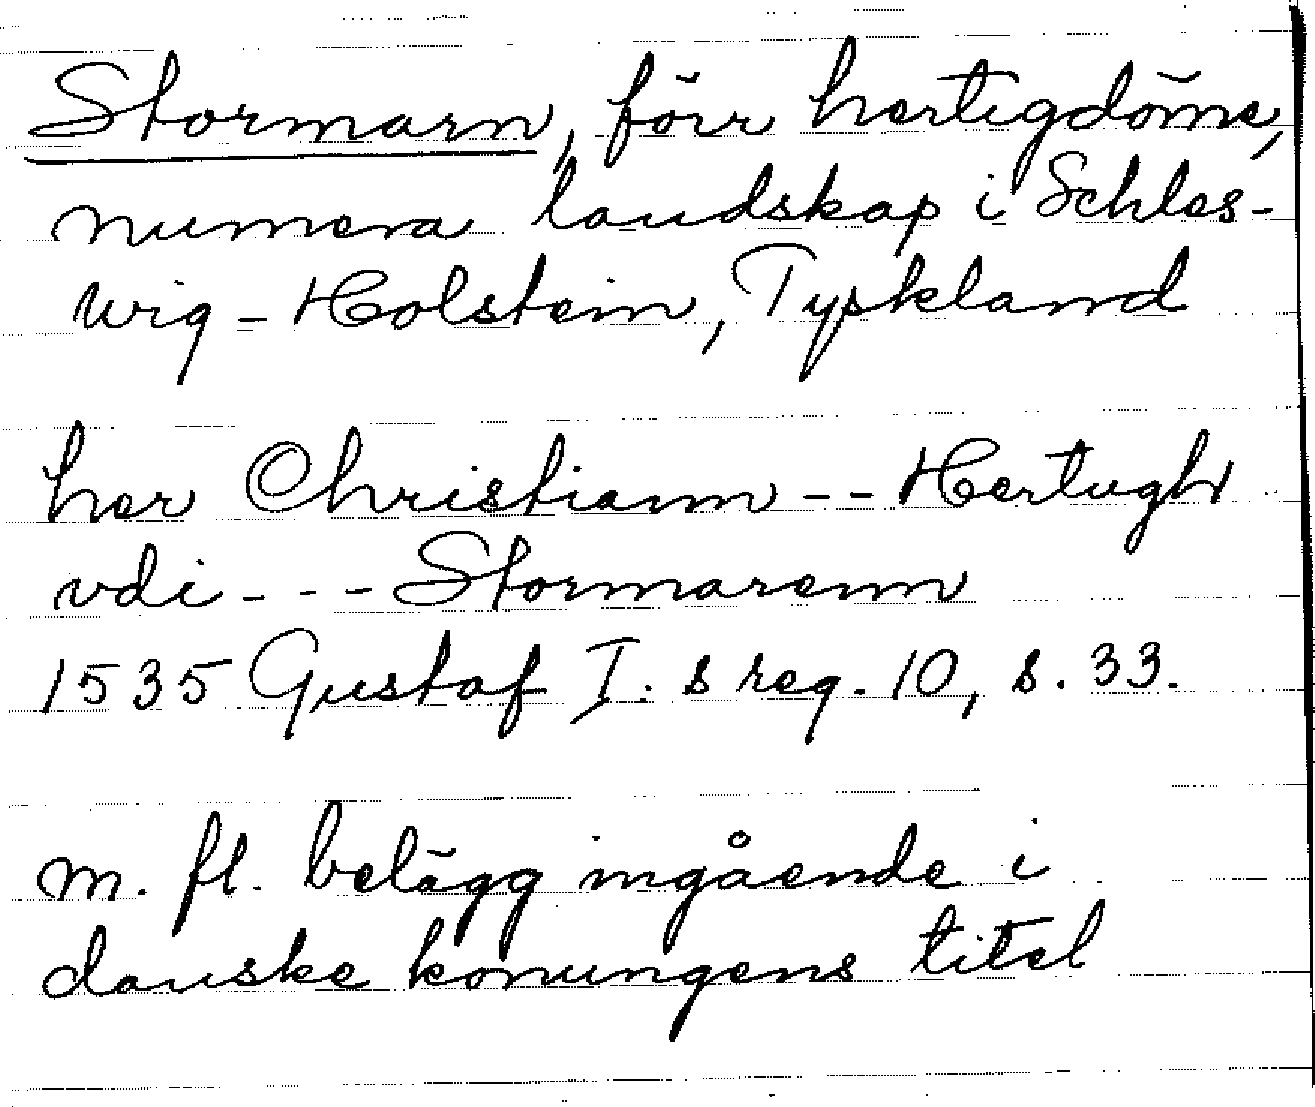 Stormarn, förr hertigdöme,
numera landskap i Schles-
wig-Holstein, Tyskland
her Christiann -- Hertugh
vdi --- Stormarenn
1535 Gustaf I:s reg. 10, s. 33.
m. fl. belägg ingående i
danske konungens titel